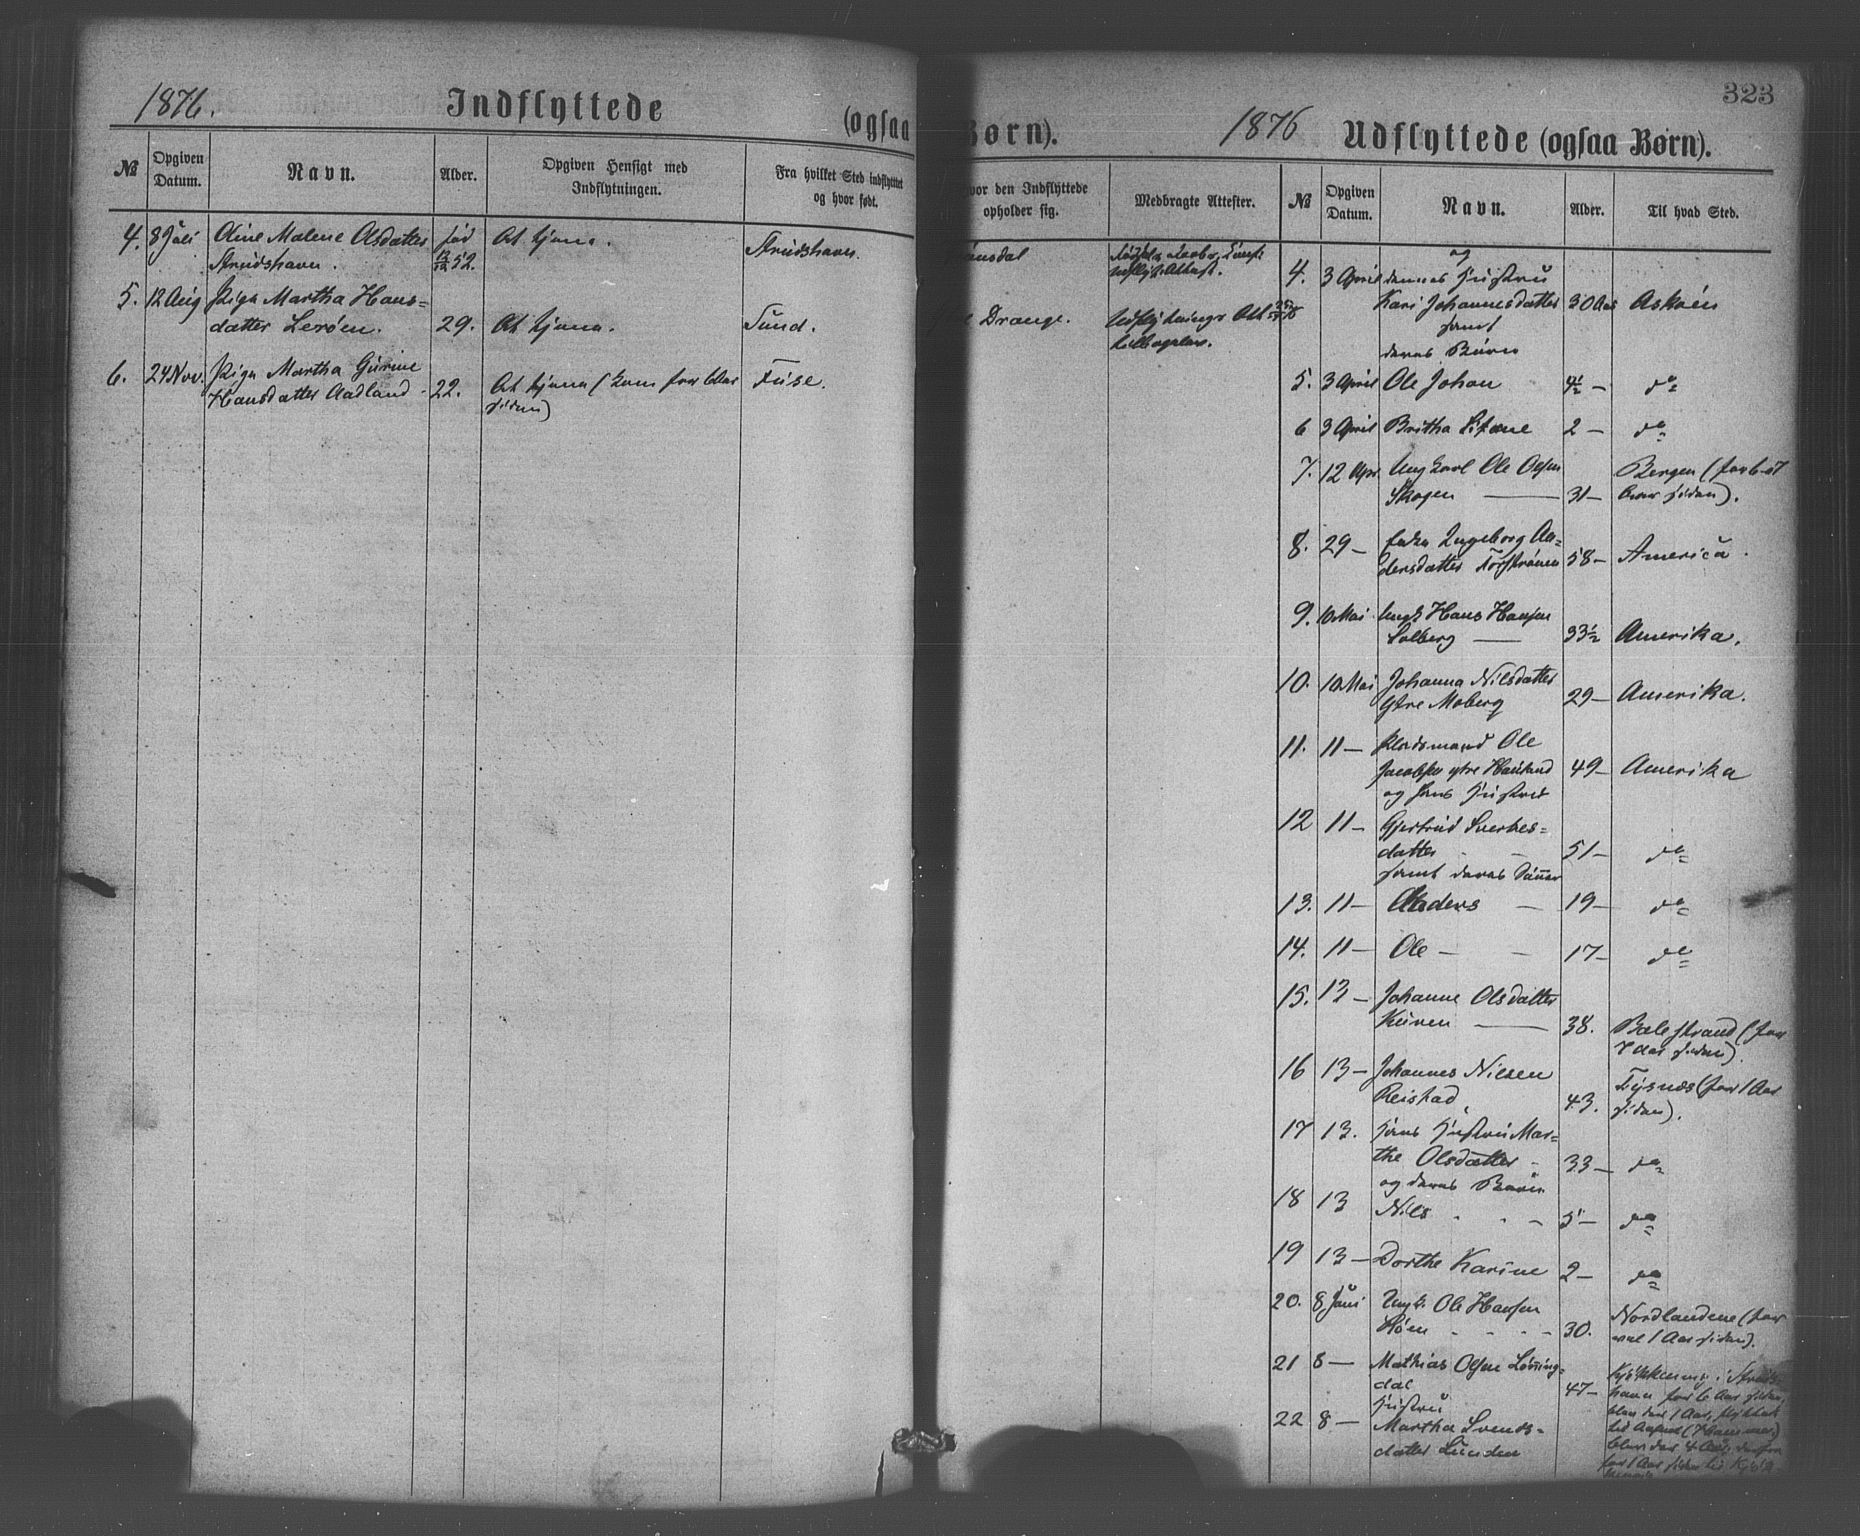 1876.
Indflyttede
(ogsaa
№
Opgiven Datum.
Navn.
Alder.
Opgiven Hensigt med Indflytningen.
Fra hvilket Sted indflyttet og hvor født.
4. 8 Juli Oline Malene Olsdatter fød At tjene. Strudshavn.
Strudshavn. 52.
5. 12 Aug Pige Martha Hans-
datter Lerøen. 29. At tjene. Sund.
6. 24 Nov. Pige Martha Gurine
Hansdatter Aadland 22. At tjene (kom for 6 Aar Fuse.
siden)
Børn).
1876
Udflyttede (ogsaa Børn).
323
vor den Indflyttede opholder sig.
Medbragte Attester.
№
Opgiven Datum.
Navn.
Alder.
Til hvad Sted.
Drange. Udflytnings Att
og
4. 3 April dennes Hustru
Kari Johannesdatter 30 Aar Askøen
samt
deres Børn
5. 3 April Ole Johan 4½ — do
6 3 April Britha 2 — do
7. 12 Apr. Ungkarl Ole Olsen Bergen (for
Skogen — 31 — siden).
8. 29 — Enke Ingeborg An-
dersdatter 58 — America.
9. 10 Mai Ungk Hans Hansen
Solberg — 33½ Amerika.
10. 10 Mai Johanna Nilsdatter
Ytre Moberg 29 — Amerika.
11. 11 — Pladsmand Ole
Jacobsen ytre Hauland 49 — Amerika
og hans Hustru
12 11 — Gjertrud Sverkes-
datter 51 — do
samt deres Sønner
13. 11 — Anders — 19 — do
14. 11 — Ole — 17 — do
15. 13 — Johanne Olsdatter
Kuven — 38. Balestrand (for
7 Aar siden).
16 13 — Johannes Nilsen Tysnæs (for 1 Aar
Reistad 43. siden).
17 13. Hans Hustru Mar-
the Olsdatter 33 — do
og deres Børn
18 13 Nils 5 — do
19 13 — Dorthe Karine 2 — do
20. 8 Juni Ungk. Ole Hansen Nordlandene (for
Røen 30. vel 1 Aar siden).
21 8 — Mathias Olsen Lønning-
dal 47 — havn for 6 Aar siden,
Hustru
22 8 — Martha Svends-
datter Lunden